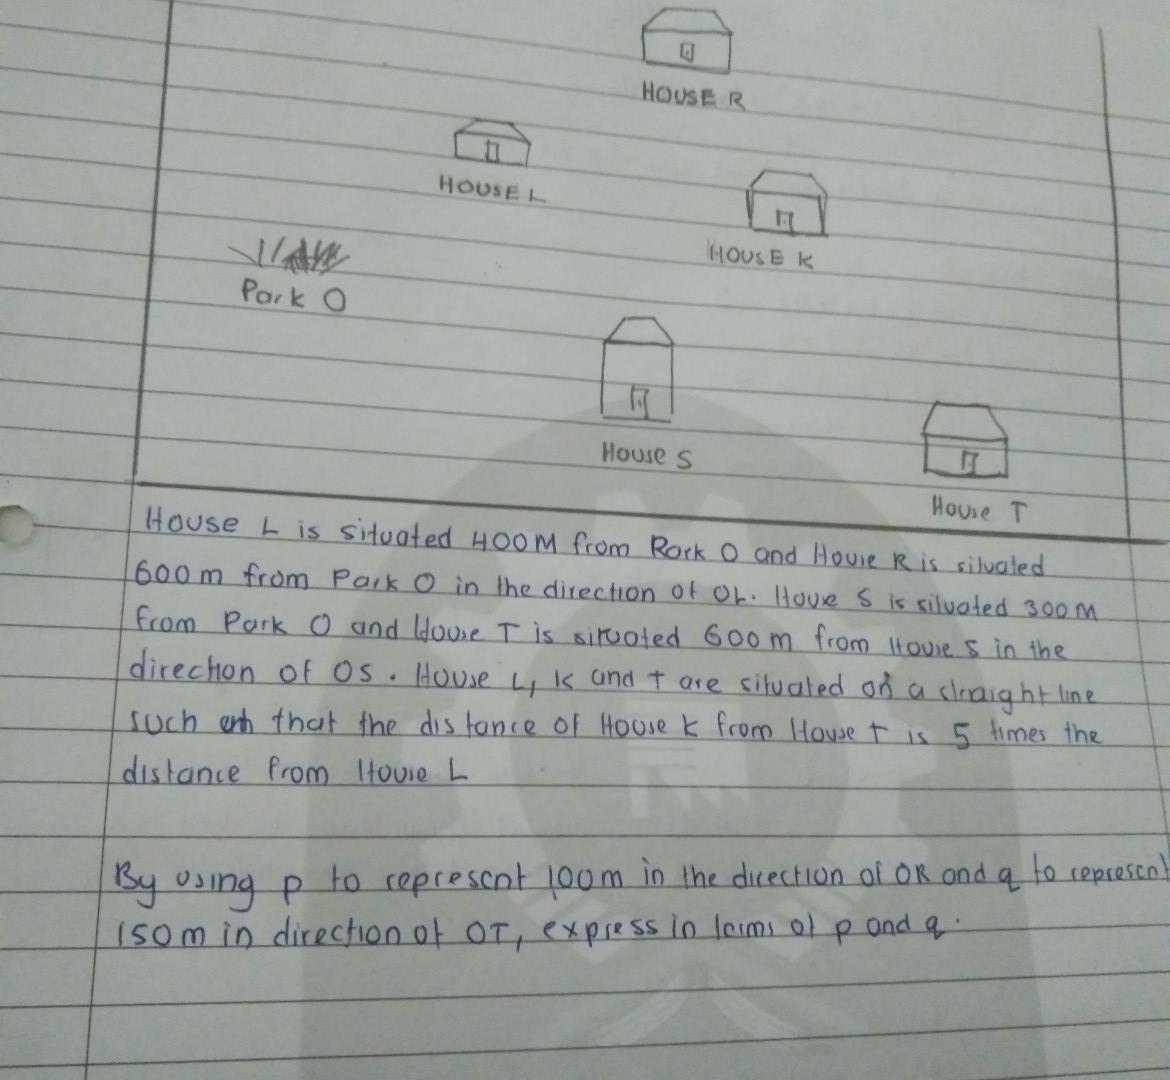 HOUSE R
HOUSE L
HOUSE K
Park O
House S
House T
House L is situated 400M from Park O and House R is situated
600m from Park O in the direction of OL. House S is situated 300M
from Park O and House T is situated 600m from House S in the
direction of OS. House L, K and T are situated on a straight line
such that the distance of House K from House T is 5 times the
distance from House L
By using p to represent 100m in the direction of OR and q to represent
150m in direction of OT, express in terms of p and q.